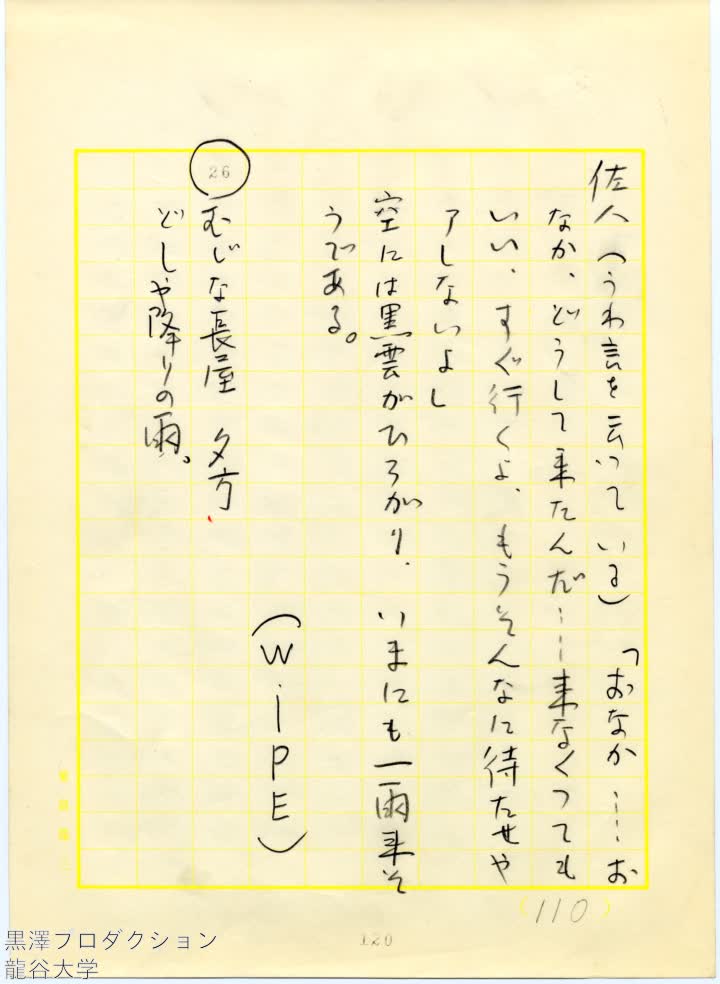 佐八（うわ言を云っている）「おなか……お
なか、どうして来たんだ……来なくっても
いい、すぐ行くよ、もうそんなに待たせや
アしないよ」
空には黒雲がひろがり、いまにも一雨来そ
うである。
（WiPE）
26
むじな長屋 夕方
どしゃ降りの雨。
(110)
120
黒澤プロダクション
龍谷大学